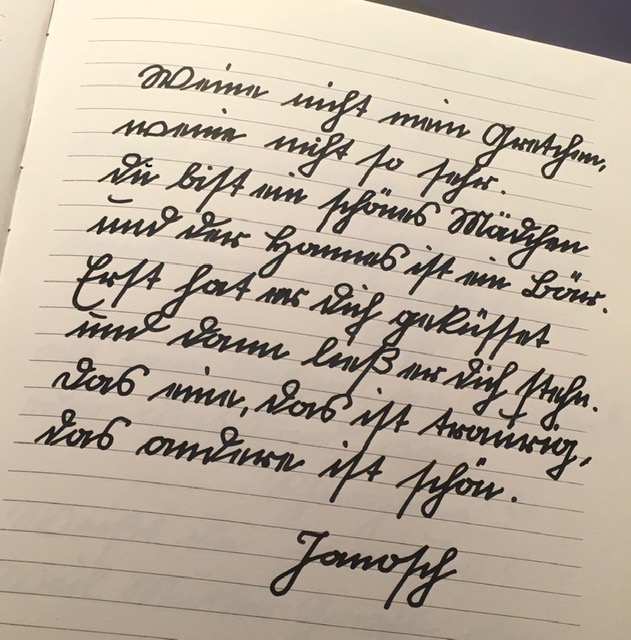 Weine nicht mein Gretchen,
weine nicht so sehr.
du bist ein schönes Mädchen
und der Hannes ist ein Bär.
Erst hat er dich geküsset
und dann ließ er dich stehn.
das eine, das ist traurig,
das andere ist schön.
Janosch